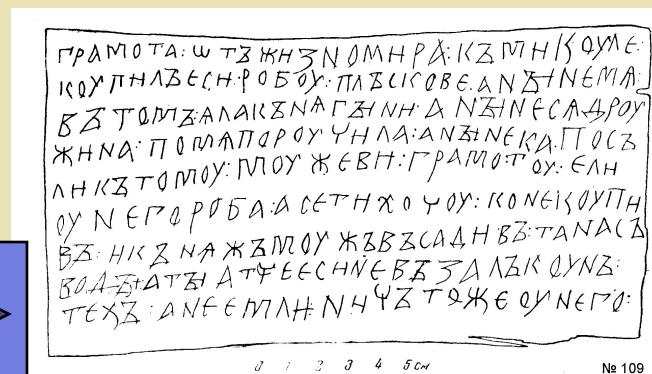 ГРАМОТА : Ѡ ТЪ ЖИЗНОМИРА : КЪ МИКОУЛЕ :
КОУПИЛЪ ЕСИ : РОБОУ : ПЛЪСКОВЕ : А НЪІНЕ МѦ :
ВЪ ТОМЪ : ѦЛА КЪНѦГЪІНИ : А НЪІНЕ СѦ ДРОУ
ЖИНА : ПО МѦ ПОРОУЧИЛА : А НЪІНЕ КА : ПОСЪ
ЛИ КЪ ТОМОУ : МОУЖЕВИ : ГРАМОТОУ : ЕЛИ
ОУ НЕГО РОБА : А СЕ ТИ ХОЧОУ : КОНЕ КОУПИ
ВЪ : И КЪНѦЖЪ МОУЖЪ ВЪСАДИВЪ : ТА НА СЪ
ВОДЪІ : А ТЪІ АТЧЕ ЕСИ НЕ ВЪЗАЛЪ КОУНЪ :
ТЕХЪ : А НЕ ЕМЛИ : НИЧЪТОЖЕ ОУ НЕГО :
0 1 2 3 4 5 см
№ 109